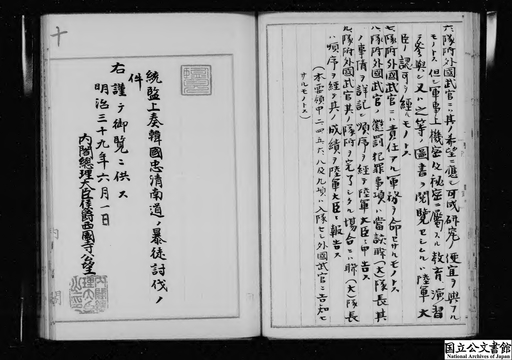 六、隊附外國武官ニハ其ノ希望ニ應シ可成研究ノ便宜ヲ與フル
モノトス但シ軍事上機密及秘密ニ屬スル教育、演習ニ
參與シ又ハ之等ノ圖書ヲ閲覽セシムルニハ陸軍大
臣ノ認可ヲ經ルモノトス
七、隊附外國武官ニハ責任アル軍務ヲ命セサルモノトス
八、隊附外國武官ノ懲罰犯罪事項ハ當該聯(大)隊長其
ノ事情ヲ詳記シ順序ヲ經テ陸軍大臣ニ申告ス
九、隊附外國武官其ノ隊附ヲ完了シタル場合ニハ聯(大)隊長
ハ順序ヲ經テ其ノ成績ヲ陸軍大臣ニ報告ス
(本心得中二四五六八及九項ハ入隊セシ外國武官ニ告知セ
サルモノトス)
十
統監上奏韓國忠清南道ノ暴徒討伐ノ
件
右謹テ御覽ニ供ス
明治三十九年六月一日
内閣總理大臣侯爵西園寺公望
国立公文書館
National Archives of Japan